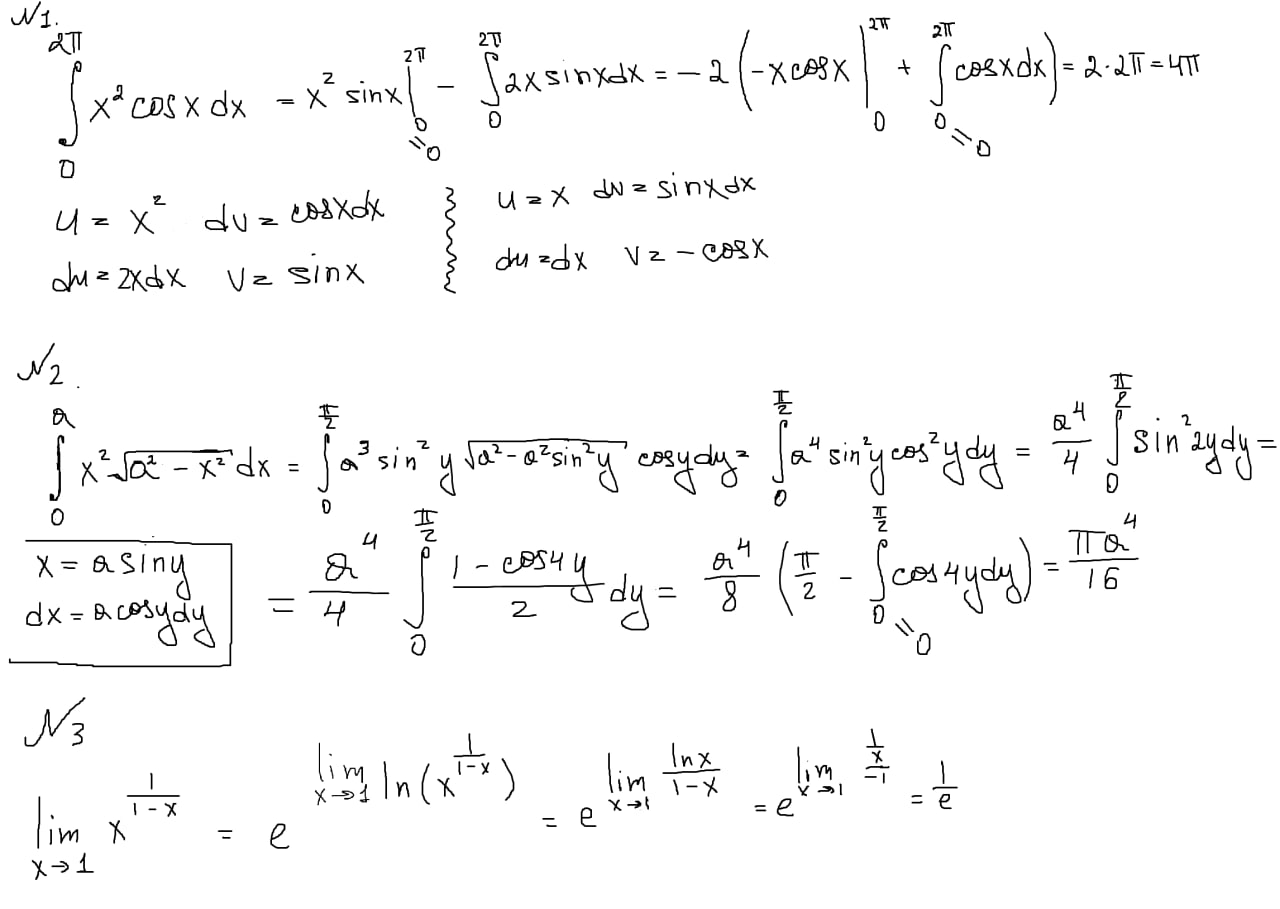 №1.
∫₀^{2π} x² cos x dx = x² sin x |₀^{2π} (=0) − ∫₀^{2π} 2x sin x dx = −2 (−x cos x |₀^{2π} + ∫₀^{2π} cos x dx (=0)) = 2·2π = 4π
u = x² dv = cosxdx u = x dv = sinxdx
du = 2xdx v = sinx du = dx v = −cosx
№2.
∫₀^{a} x² √(a² − x²) dx = ∫₀^{π/2} a³ sin² y √(a² − a² sin² y) cosydy = ∫₀^{π/2} a⁴ sin² y cos² y dy = a⁴/4 ∫₀^{π/2} sin² 2y dy =
x = a siny
dx = a cosydy
= a⁴/4 ∫₀^{π/2} (1 − cos4y)/2 dy = a⁴/8 (π/2 − ∫₀^{π/2} cos4ydy (=0)) = πa⁴/16
№3
lim_{x→1} x^{1/(1−x)} = e^{lim_{x→1} ln(x^{1/(1−x)})} = e^{lim_{x→1} lnx/(1−x)} = e^{lim_{x→1} (1/x)/(−1)} = 1/e